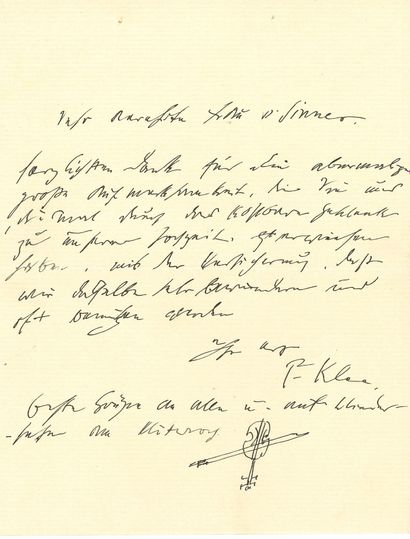 Sehr verehrte Frau v Sinner.
herzlichsten Dank für die abermalige
große Aufmerksamkeit, die Sie uns
diesmal durch das kostbare Geschenk
zu unserer Hochzeit erwiesen
haben, mit der Versicherung, dass
wir dasselbe sehr bewundern und
oft benützen werden
Ihr erg
P. Klee.
beste Grüße an alle u.